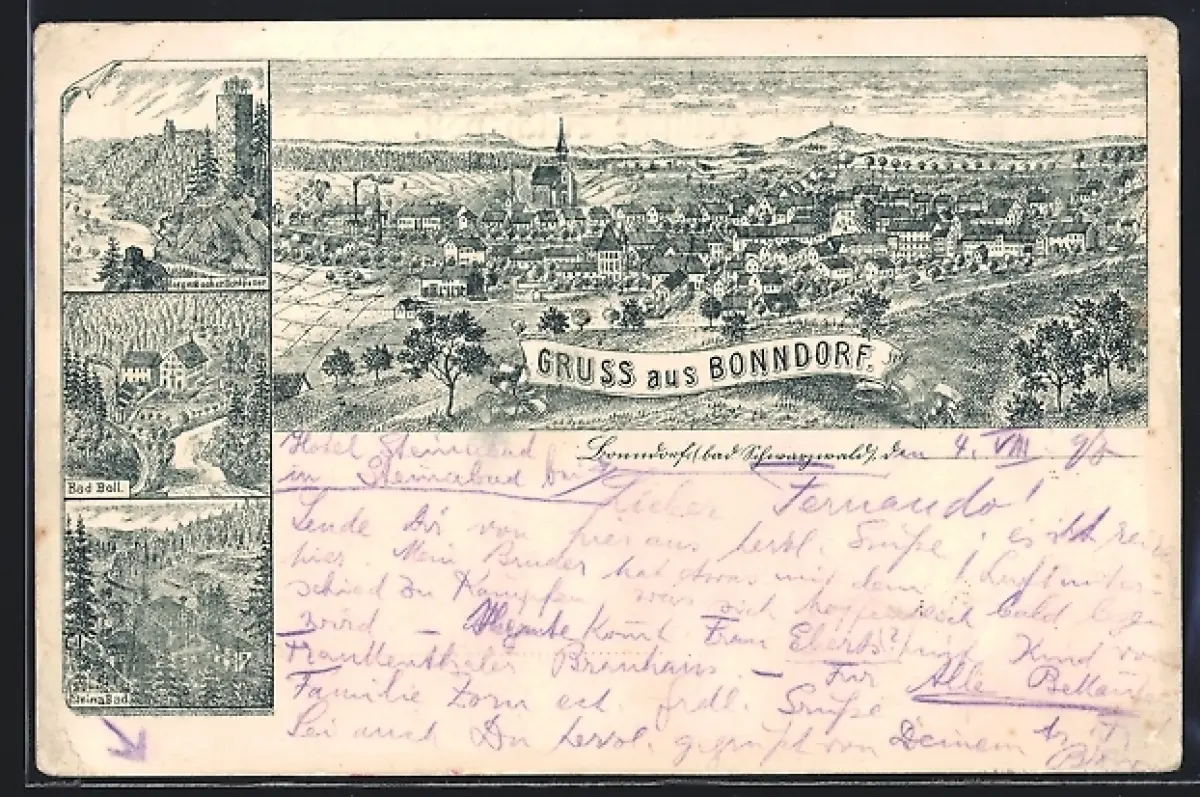 Bad Boll.
Steina Bad.
GRUSS aus BONNDORF.
Bonndorf, (bad Schwarzwald), den 4. VIII. 98
Hotel Steinabad
in Steinabad bei
Lieber Fernando!
Sende Dir von hier aus herzl. Grüße, es ist
hier. Mein Bruder hat etwas mit dem Luftunter-
schied zu kämpfen was sich hoffentlich bald legen
wird – Heute kommt Frau Eberts? mit Kind von
Frankenthaler Brauhaus. – Für Alle Bekannte
Familie Zorn ect. frdl. Grüße
Sei auch Du herzl. gegrüßt von Deinem